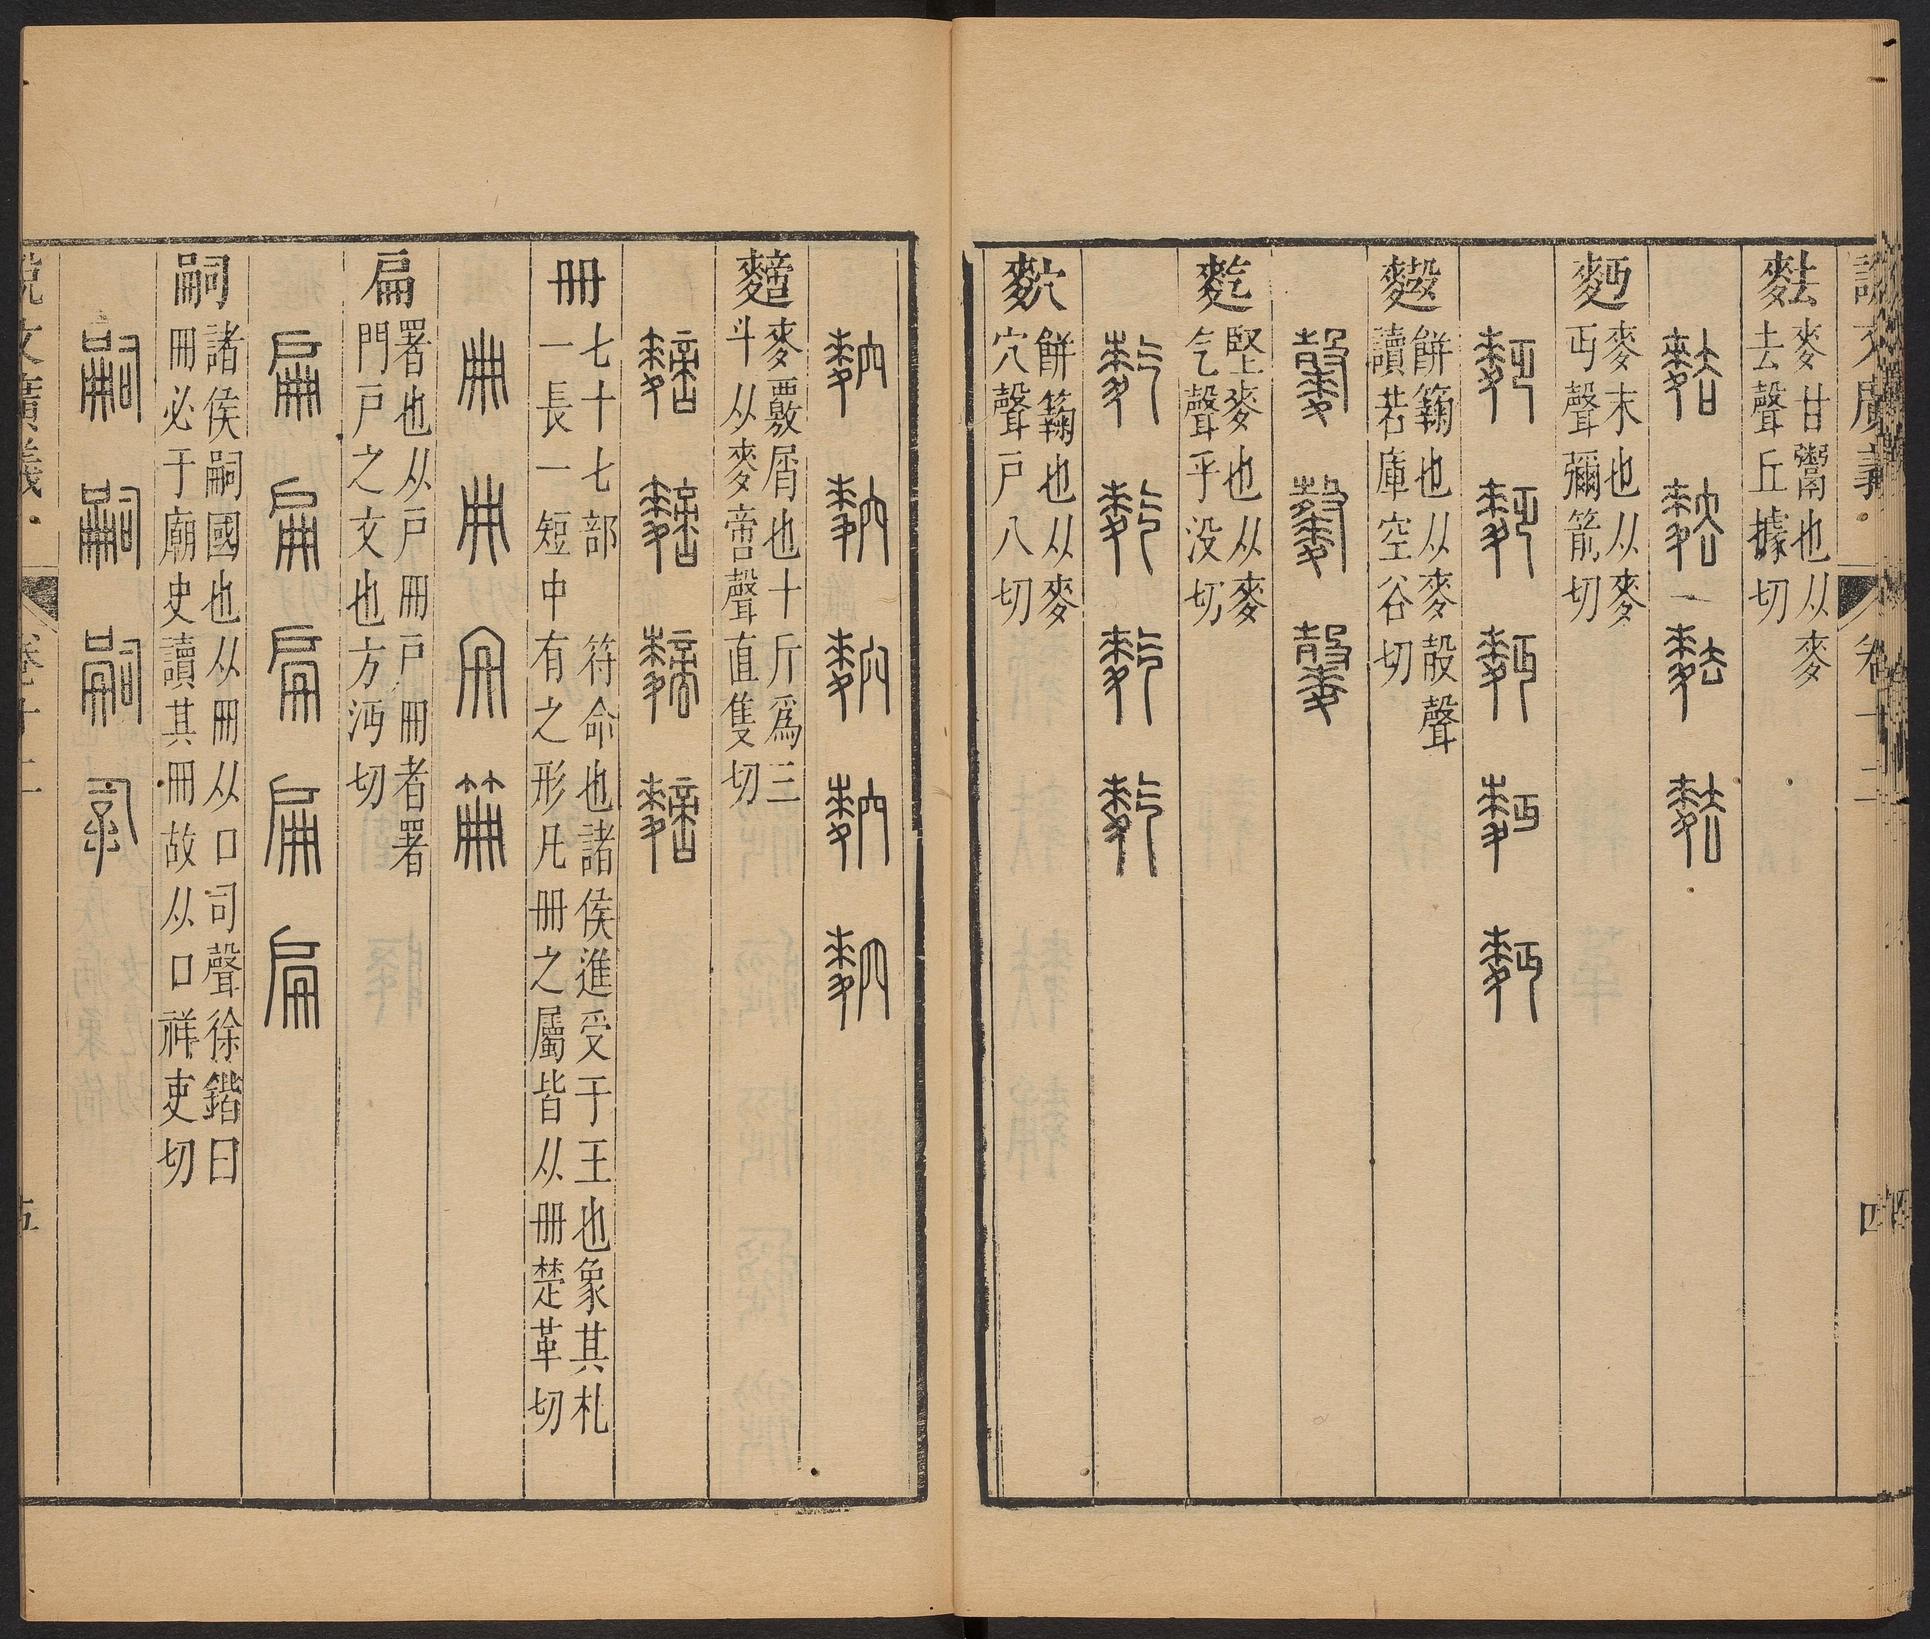 說文廣義 卷十二 四
麮 麥甘鬻也从麥
去聲丘據切
麮 麮 麮 麮
麫 麥末也从麥
丏聲彌箭切
麫 麫 麫 麫 麫
𪍠 餅𥶶也从麥㱿聲
讀若庫空谷切
𪍠 𪍠 𪍠
麧 堅麥也从麥
气聲乎没切
麧 麧 麧 麧
𪌘 餅𥶶也从麥
穴聲戶八切
𪌘 𪌘 𪌘 𪌘 𪌘
䵂 麥覈屑也十斤爲三
斗从麥啻聲直隻切
䵂 䵂 䵂 䵂
冊 七十七部 符命也諸侯進受于王也象其札
一長一短中有之形凡冊之屬皆从冊楚革切
冊 冊 冊 𠕋
扁 署也从戶冊戶冊者署
門戶之文也方沔切
扁 扁 扁 扁 扁
嗣 諸侯嗣國也从冊从口司聲徐鍇曰
冊必于廟史讀其冊故从口祥吏切
嗣 嗣 嗣
說文廣義 卷十二 五